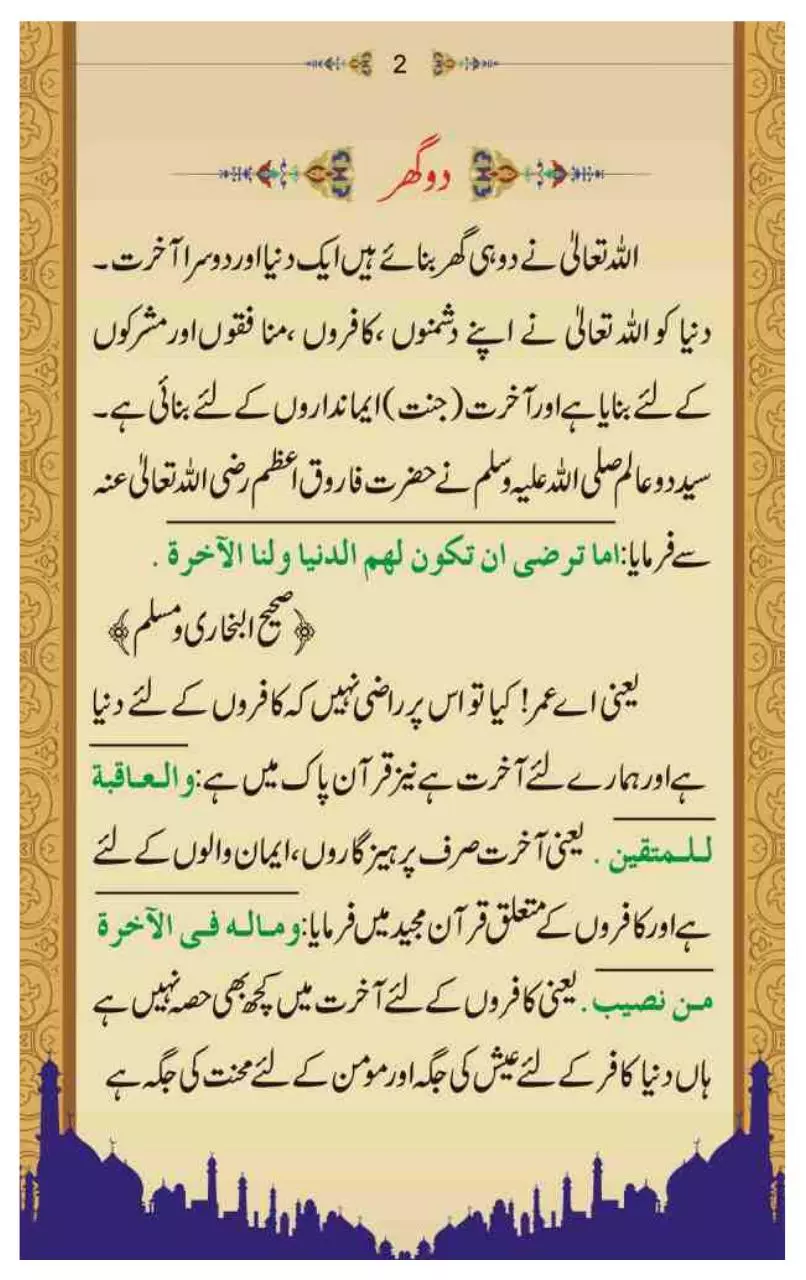 2
دو گھر
اللہ تعالیٰ نے دو ہی گھر بنائے ہیں ایک دنیا اور دوسرا آخرت۔
دنیا کو اللہ تعالیٰ نے اپنے دشمنوں، کافروں، منافقوں اور مشرکوں
کے لئے بنایا ہے اور آخرت (جنت) ایمانداروں کے لئے بنائی ہے۔
سید دو عالم صلی اللہ علیہ وسلم نے حضرت فاروق اعظم رضی اللہ تعالیٰ عنہ
سے فرمایا: اما ترضی ان تکون لهم الدنيا ولنا الآخرة .
﴿صحیح البخاری و مسلم﴾
یعنی اے عمر! کیا تو اس پر راضی نہیں کہ کافروں کے لئے دنیا
ہے اور ہمارے لئے آخرت ہے نیز قرآن پاک میں ہے: والعاقبة
للمتقين . یعنی آخرت صرف پرہیزگاروں، ایمان والوں کے لئے
ہے اور کافروں کے متعلق قرآن مجید میں فرمایا: وماله فى الآخرة
من نصيب . یعنی کافروں کے لئے آخرت میں کچھ بھی حصہ نہیں ہے
ہاں دنیا کافر کے لئے عیش کی جگہ اور مومن کے لئے محنت کی جگہ ہے